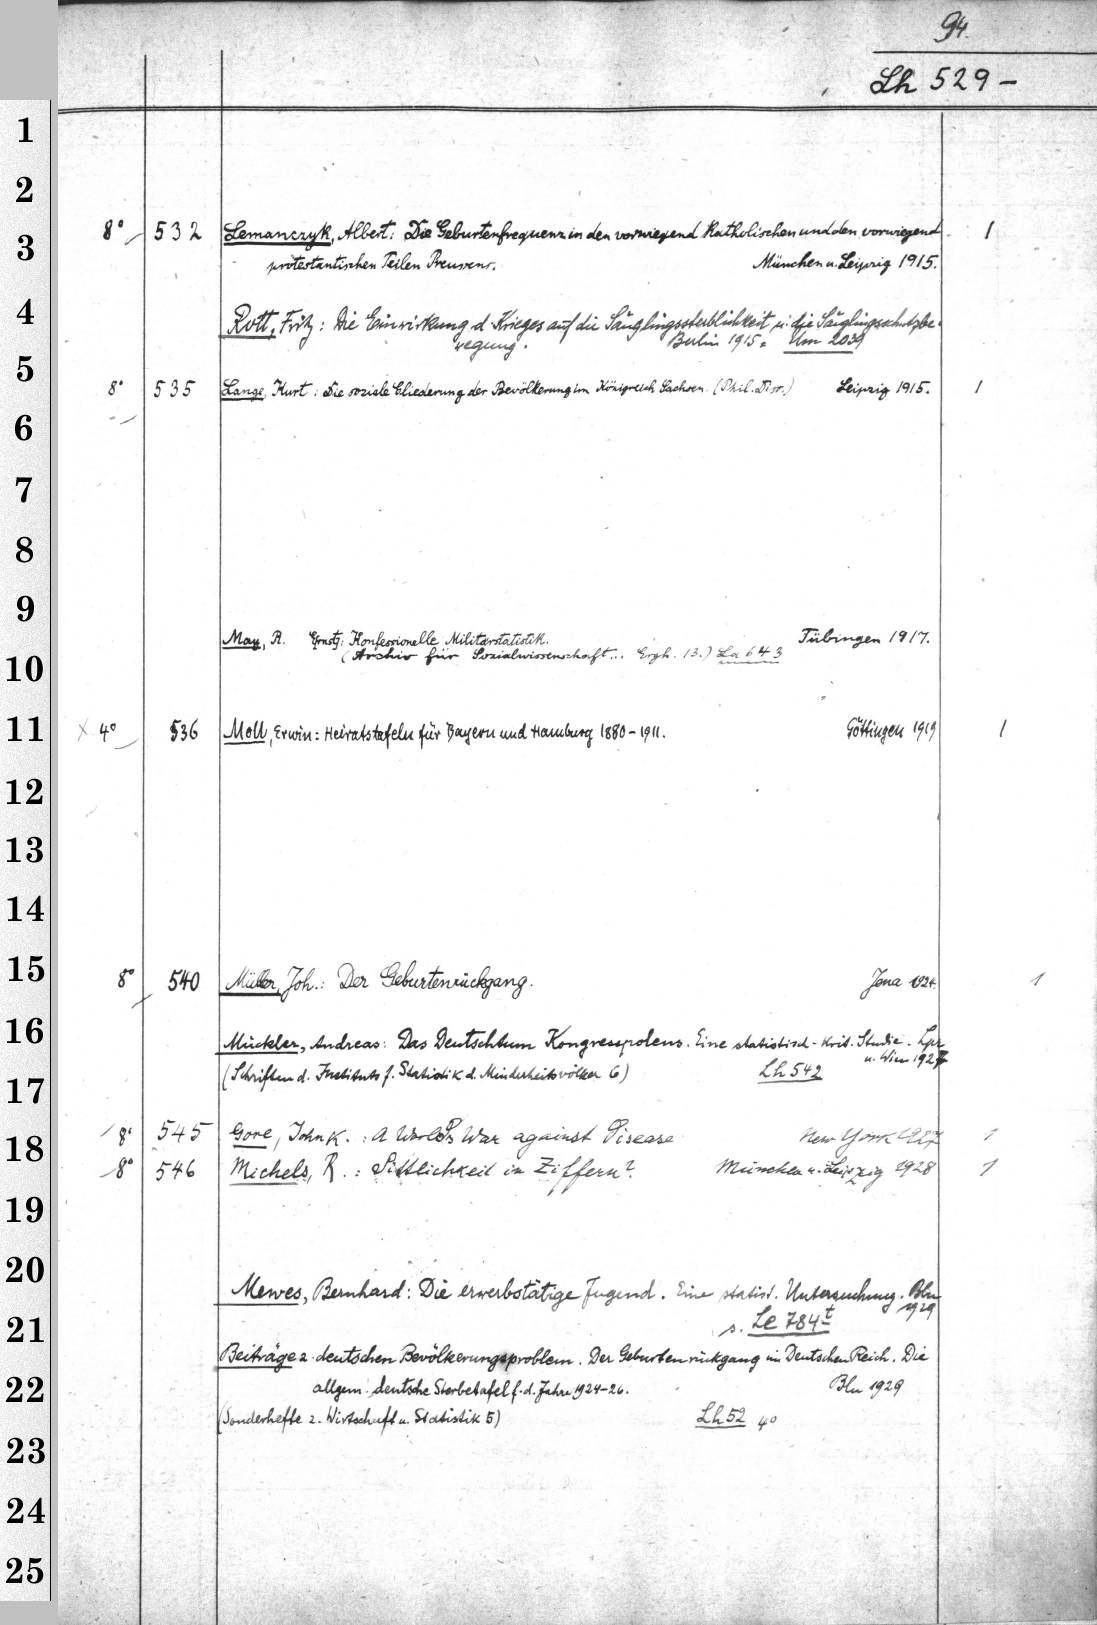 94.
Lh 529 -
1
2
3
4
5
6
7
8
9
10
11
12
13
14
15
16
17
18
19
20
21
22
23
24
25
8° 532 Lemanczyk, Albert: Die Geburtenfrequenz in den vorwiegend Katholischen und den vorwiegend 1
protestantischen Teilen Preussens. München u. Leipzig 1915.
Rott, Fritz: Die Einwirkung d. Krieges auf die Säuglingssterblichkeit u. die Säuglingsschutzbe-
wegung. Berlin 1915. Um 2039
8° 535 Lange, Kurt: Die soziale Gliederung der Bevölkerung im Königreich Sachsen. (Phil. Diss.) Leipzig 1915. 1
May, R. Ernst: Konfessionelle Militärstatistik. Tübingen 1917.
(Archiv für Sozialwissenschaft... Ergh. 13.) La 643
x 4° 536 Moll, Erwin: Heiratstafeln für Bayern und Hamburg 1880-1911. Göttingen 1919 1
8° 540 Müller, Joh.: Der Geburtenrückgang. Jena 1924. 1
Mückler, Andreas: Das Deutschtum Kongresspolens. Eine statistisch-krit. Studie. Lpz
u. Wien 1927
(Schriften d. Instituts f. Statistik d. Minderheitsvölker 6) Lh 542
8° 545 Gore, John K.: A World's War against Disease New York 1927 1
8° 546 Michels, R.: Sittlichkeit in Ziffern? München u. Leipzig 1928 1
Mewes, Bernhard: Die erwerbstätige Jugend. Eine statist. Untersuchung. Bln
1929
s. Le 784t
Beiträge z. deutschen Bevölkerungsproblem. Der Geburtenrückgang im Deutschen Reich. Die
allgem. deutsche Sterbetafel f. d. Jahre 1924-26. Bln 1929
(Sonderhefte z. Wirtschaft u. Statistik 5) Lh 52 4°